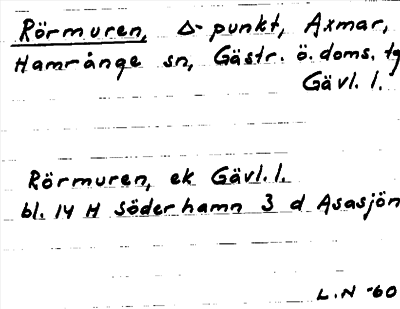 Rörmuren, Δ-punkt, Axmar,
Hamrånge sn, Gästr. ö. doms. tg
Gävl. l.
Rörmuren, ek Gävl. l.
bl. 14 H Söderhamn 3 d Asasjön
L. N -60